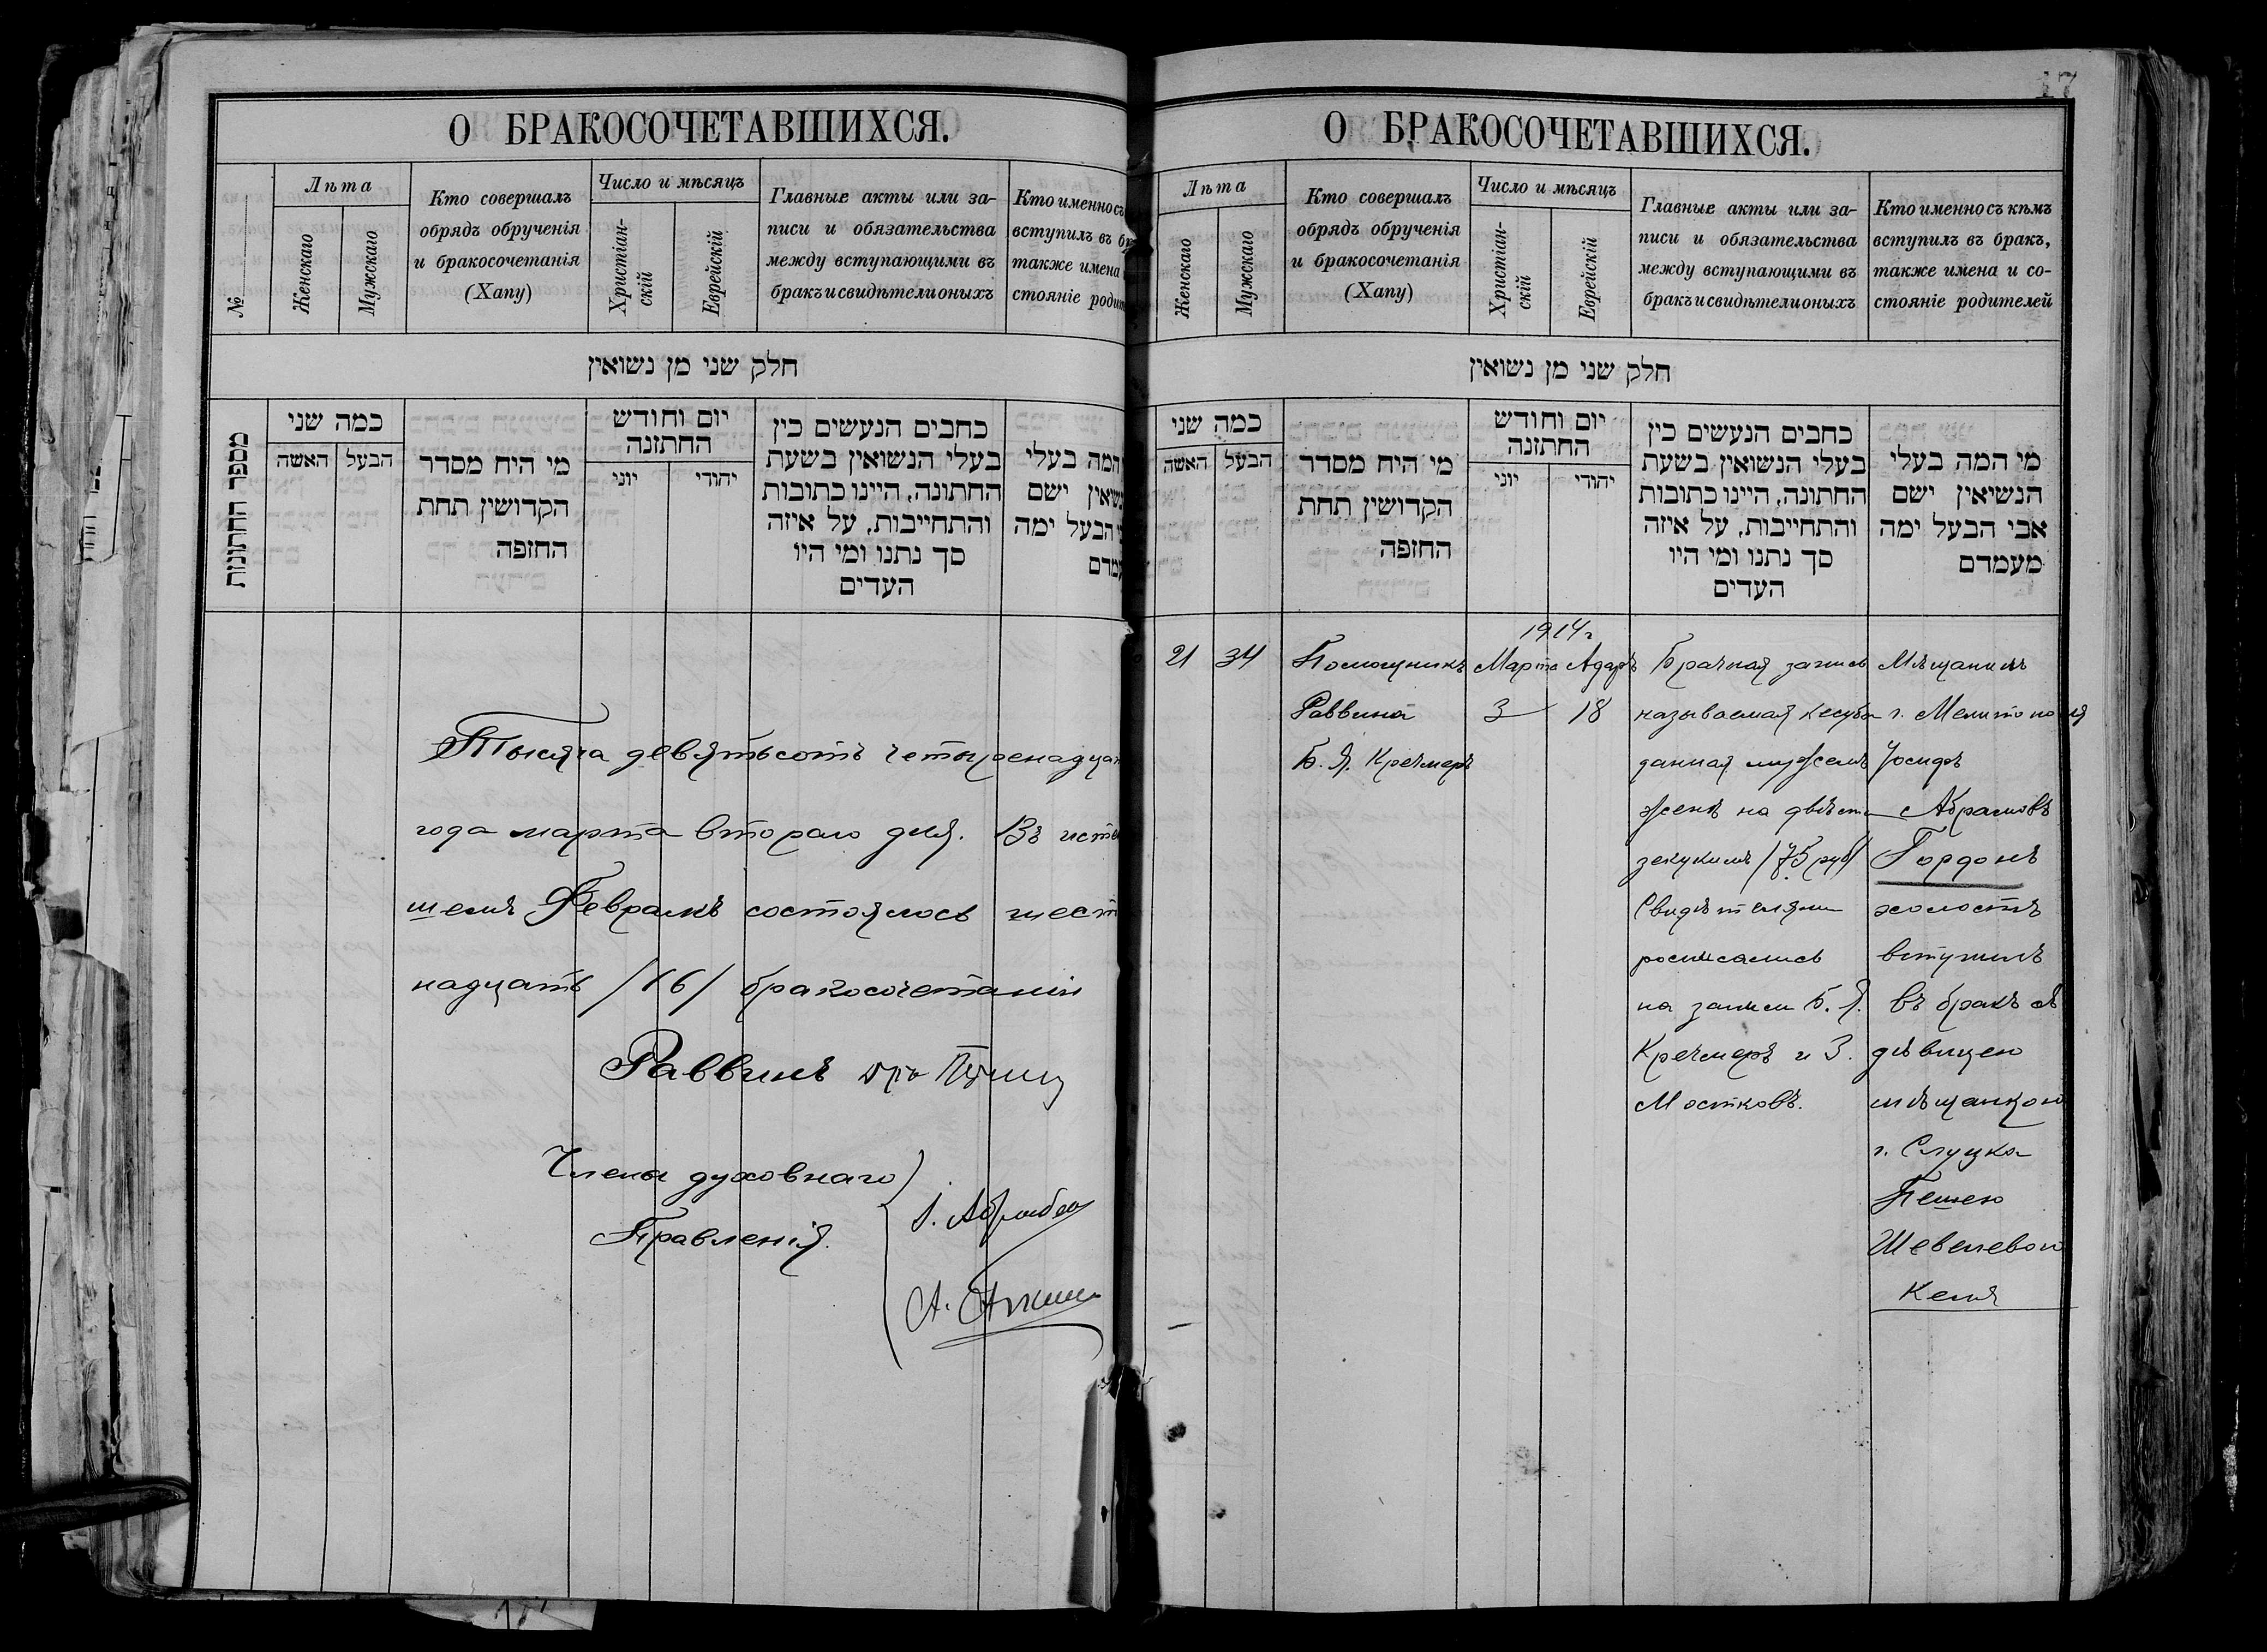 О БРАКОСОЧЕТАВШИХСЯ.
№
Лѣта
Женскаго
Мужскаго
Кто совершалъ
обрядъ обрученія
и бракосочетанія
(Хапу)
Число и мѣсяцъ
Христіан-
скій
Еврейскій
Главные акты или за-
писи и обязательства
между вступающими въ
бракъ и свидѣтели оныхъ
Кто именно съ
вступилъ въ бр
также имена
стояніе родит
חלק שני מן נשואין
מספר החתונות
כמה שני
האשה
הבעל
מי היח מסדר
הקדושין תחת
החופה
יום וחודש
החתונה
יוני
יהודי
כחבים הנעשים כין
בעלי הנשואין בשעת
החתונה, היינו כתובות
והתחייבות, על איזה
סך נתנו ומי היו
העדים
המה בעלי
שיאין ישם
הבעל ימה
עמדם
Тысяча девятьсотъ четыренадцат
года марта второго дня. Въ исте
шемъ Февралѣ состоялось шест
надцать /16/ бракосочетаній
Раввинъ
Члены духовнаго
Правленія.
17
О БРАКОСОЧЕТАВШИХСЯ.
Лѣта
Женскаго
Мужскаго
Кто совершалъ
обрядъ обрученія
и бракосочетанія
(Хапу)
Число и мѣсяцъ
Христіан-
скій
Еврейскій
Главные акты или за-
писи и обязательства
между вступающими въ
бракъ и свидѣтели оныхъ
Кто именно съ кѣмъ
вступилъ въ бракъ,
также имена и со-
стояніе родителей
חלק שני מן נשואין
כמה שני
האשה
הבעל
מי היח מסדר
הקדושין תחת
החופה
יום וחודש
החתונה
יוני
יהודי
כחבים הנעשים כין
בעלי הנשואין בשעת
החתונה, היינו כתובות
והתחייבות, על איזה
סך נתנו ומי היו
העדים
מי המה בעלי
הנשיאין ישם
אבי הבעל ימה
מעמדם
21
34
Помощникъ
Раввина
Б. Я. Кречмеръ
1914г
Марта Адаръ
3 18
Брачная запись
называемая кесуба
данная мужемъ
женѣ на двѣсти
зекукимъ /75 руб/
Свидѣтелями
росписались
на записи Б. Я.
Кречмеръ и З.
Мостковъ.
Мѣщанинъ
г. Мелитополя
Іосифъ
Абрамовъ
Гордонъ
холостъ
вступилъ
въ бракъ съ
дѣвицею
мѣщанкою
г. Слуцка
Пешею
Шевелевою
Кемя